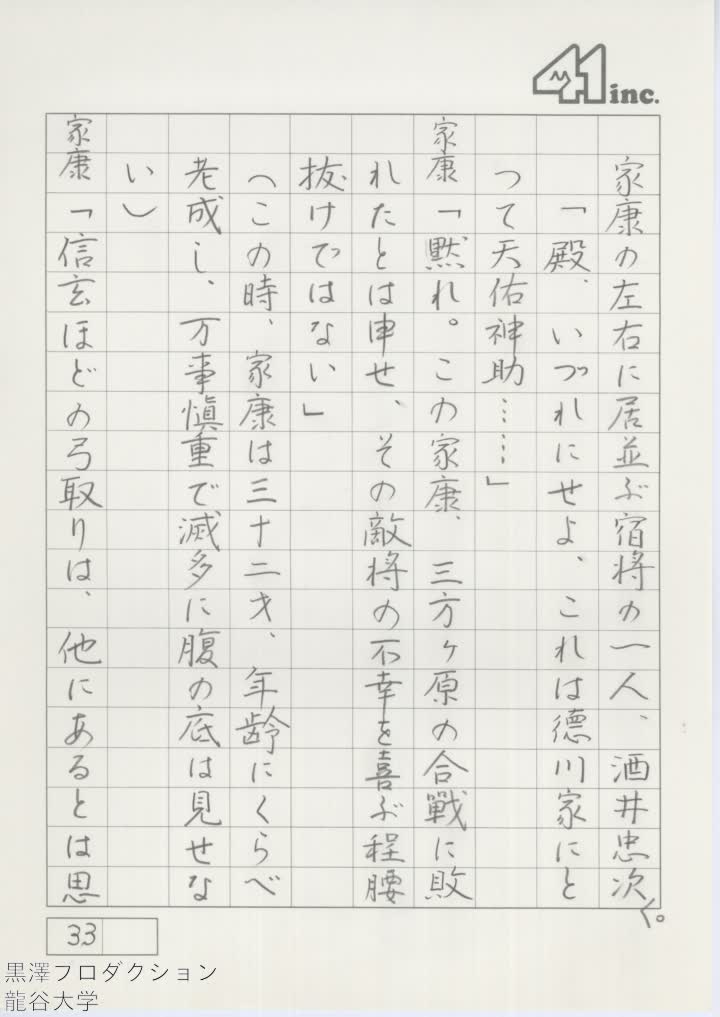 41 inc.
家康の左右に居並ぶ宿将の一人、酒井忠次く。
「殿、いづれにせよ、これは德川家にと
って天佑神助……」
家康「黙れ。この家康、三方ヶ原の合戰に敗
れたとは申せ、その敵将の不幸を喜ぶ程腰
抜けではない」
（この時、家康は三十二才、年齢にくらべ
老成し、万事慎重で滅多に腹の底は見せな
い）
家康「信玄ほどの弓取りは、他にあるとは思
33
黒澤フロダクション
龍谷大学